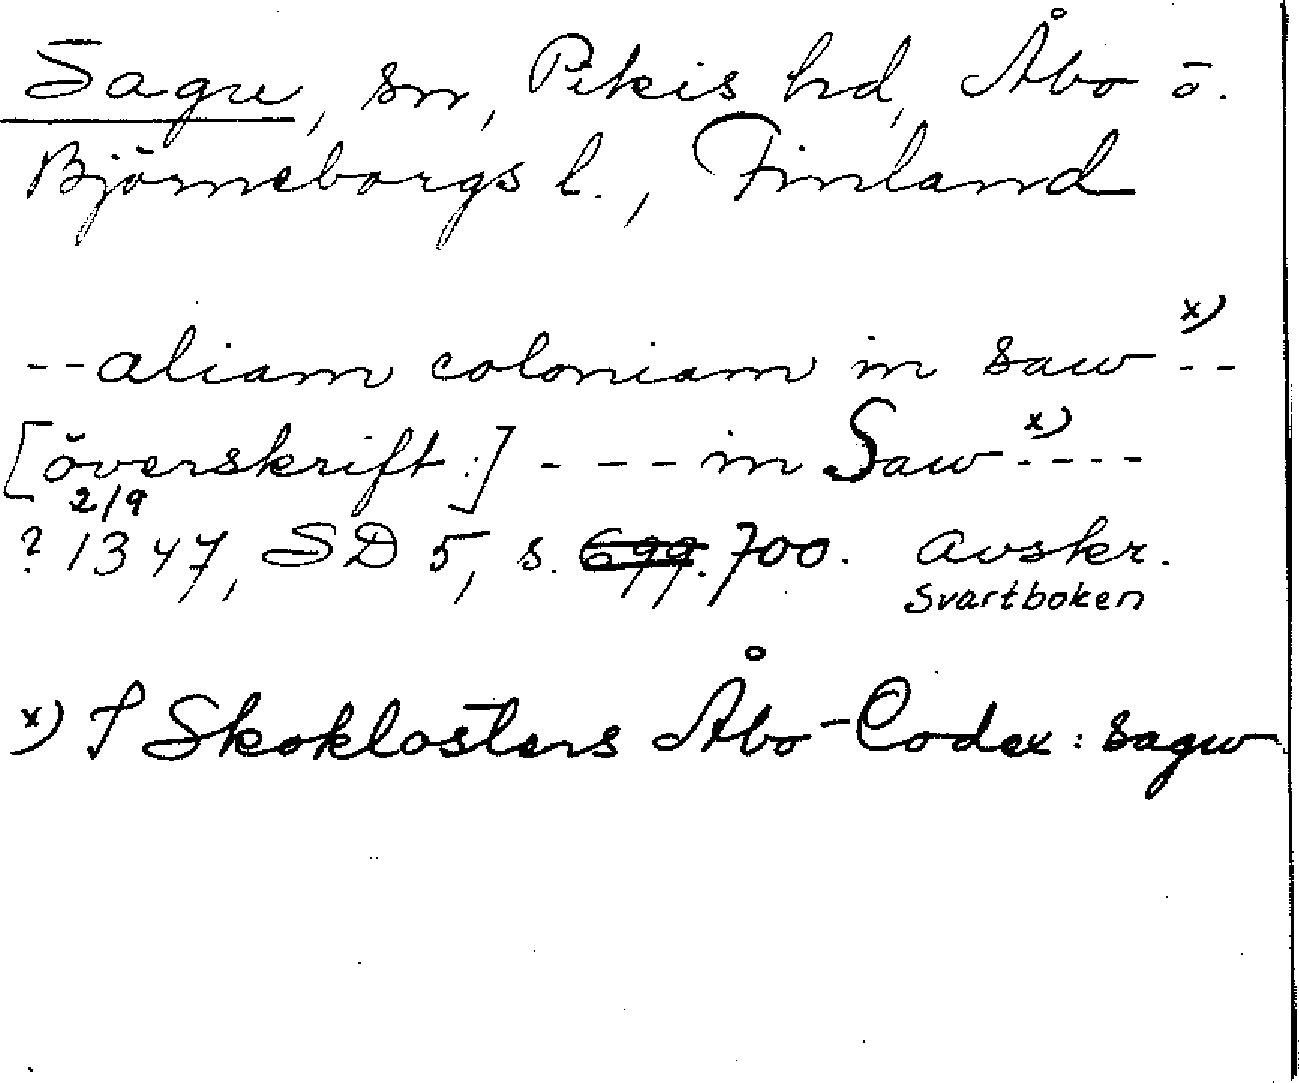 Sagu, sn, Pikis hd, Åbo o.
Björneborgs l., Finland
--aliam coloniam in saw x) --
[överskrift:] ---in Saw x) ----
2/9
? 1347, SD 5, s. 699. 700. Avskr.
Svartboken
x) I Skoklosters Åbo-Codex: sagw